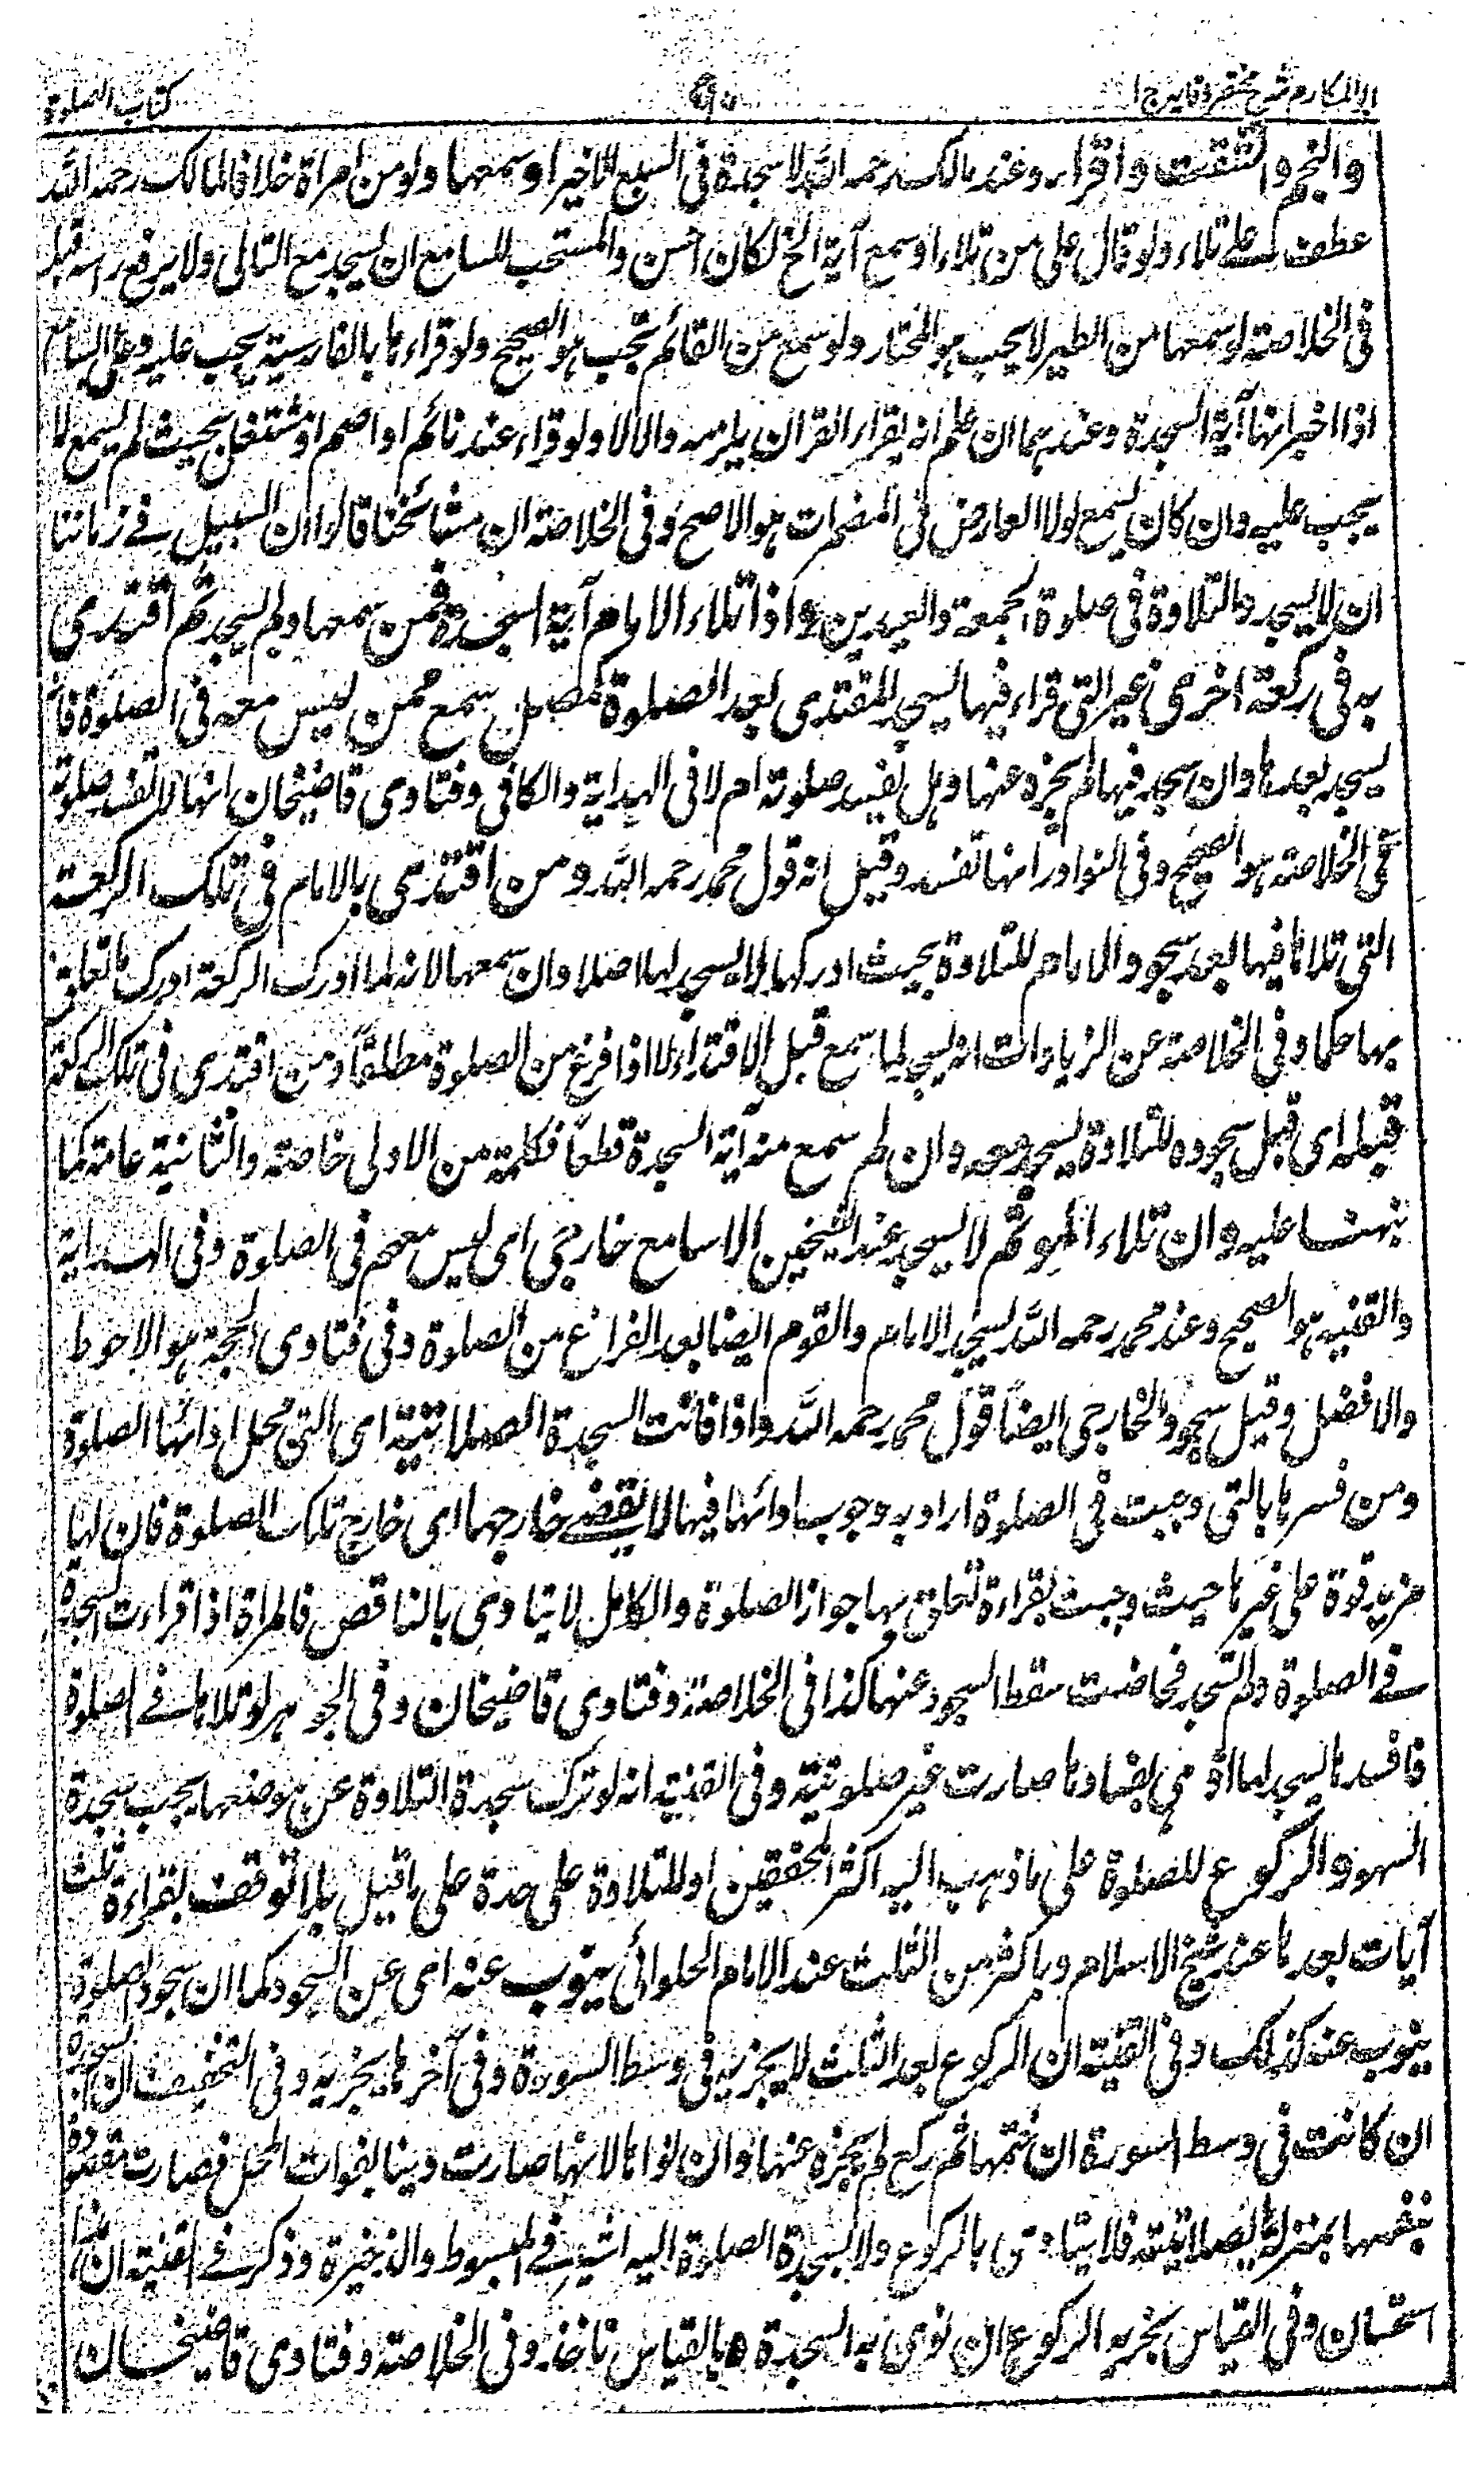 ابو المکارم شرح مختصر وقایہ ج ا
۹۰
کتاب الصلوة
والنجم وانشقت واقراء وعند مالک رحمه الله لا سجدة فی السبع الاخیر او سمعها ولو من امراة خلافا لمالک رحمه الله
عطف علے تلاء ولو قال علی من تلاء او سمع آیة الخ لکان احسن والمستحب للسامع ان یسجد مع التالی ولا یرفع راسه قبله
فی الخلاصة لو سمعها من الطیر لا یجب هو المختار ولو سمع من النائم تجب هو الصحیح ولو قراءها بالفارسیة یجب علیه وعلی السامع
اذا اخبر انها آیة السجدة وعندهما ان علم انه یقراء القران یلزمه والا لا ولو قراء عند نائم او اصم او مشتغل بحیث لم یسمع لا
یجب علیه وان کان یسمع لولا العارض فی المضمرات هو الاصح وفی الخلاصة ان مشائخنا قالوا ان السبیل فے زماننا
ان لا یسجد والتلاوة فی صلوة الجمعة والعیدین واذا تلاء الامام آیة السجدة فمن سمعها ولم یسجد ثم اقتدی
به فی رکعة اخری غیر التی قراء فیها یسجد المقتدی بعد الصلوة کمصل سمع ممن لیس معه فی الصلوة فانه
یسجد بعدها وان سجد فیها لم یجزه عنها وهل یفسد صلوته ام لا فی الهدایة والکافی وفتاوی قاضیخان انها لا تفسد صلوته
فی الخلاصة هو الصحیح وفی النوادر انها تفسد وقیل انه قول محمد رحمه الله ومن اقتدی بالامام فی تلک الرکعة
التی تلاها فیها بعد سجود الامام للتلاوة بحیث ادرکها لا یسجد لها اصلا وان سمعها لانه لما ادرک الرکعة ادرک ما تعلق
بها حکما وفی الخلاصة عن الزیادات انه یسجد لما سمع قبل الاقتداء لا اذا فرغ من الصلوة مطلقا ومن اقتدی فی تلک الرکعة
قبله ای قبل سجوده للتلاوة یسجد معه وان لم سمع منه آیة السجدة قطعا فکلمة من الاولی خاصة والثانیة عامة کما
نبهنا علیه وان تلاء المؤتم لا یسجد عند الشیخین الا سامع خارجی ای لیس معهم فی الصلوة وفی الهدایة
والقنیة هو الصحیح وعند محمد رحمه الله یسجد الامام والقوم ایضا بعد الفراغ من الصلوة وفی فتاوی الحجة هو الاحوط
والافضل وقیل سجود الخارجی ایضا قول محمد رحمه الله واذا فاتت السجدة الصلاتیة ای التی محل ادائها الصلوة
ومن فسرها بالتی وجبت فی الصلوة اراد به وجوب ادائها فیها لا یقضے خارجها ای خارج تلک الصلوة فان لها
مزید قوة علی غیرها حیث وجبت بقراءة تعلق بها جواز الصلوة والکامل لا یتادی بالناقص فالمراة اذا قراءت السجدة
فے الصلوة ولم تسجد فحاضت سقط السجود عنها کذا فی الخلاصة وفتاوی قاضیخان وفی الجوهر لو تلاها فے الصلوة
فافسدها یسجد لها اذ هی بفسادها صارت غیر صلوتیة وفی القنیة انه لو ترک سجدة التلاوة عن موضعها یجب سجدة
السهو والرکوع للصلوة علی ما ذهب الیه اکثر المحققین او للتلاوة علی حدة علی ما قیل بلا توقف بقراءة ثلث
آیات بعدها عند شیخ الاسلام وباکثر من الثلث عند الامام الحلوائی ینوب عنه ای عن السجود کما ان سجود الصلوة
ینوب عنه کذلک وفی القنیة ان الرکوع بعد الثلث لا یجزیه فی وسط السورة وفی آخرها یجزیه وفی التخفیف ان السجدة
ان کانت فی وسط السورة ان ختمها ثم رکع لم یجزه عنها وان نواها لانها صارت دینا لفوات المحل فصارت مقصودة
بنفسها بمنزلة الصلاتیة فلا یتادی بالرکوع ولا بسجدة الصلوة الیه اشیر فے المبسوط والذخیرة وذکر فے القنیة ان
استحسان وفی القیاس یجزیه الرکوع ان نوی به السجدة وبالقیاس ناخذ وفی الخلاصة وفتاوی قاضیخان